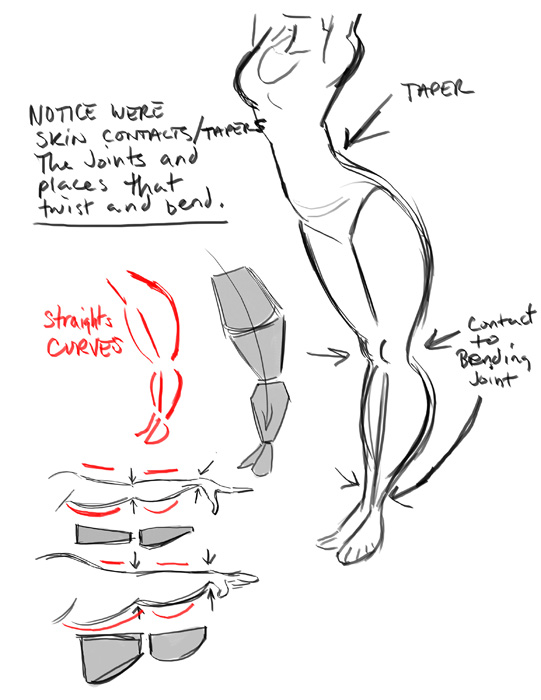 NOTICE WERE
SKIN CONTACTS/TAPERS
The Joints and
places that
twist and bend.
TAPER
Straights
CURVES
Contact
to
Bending
Joint